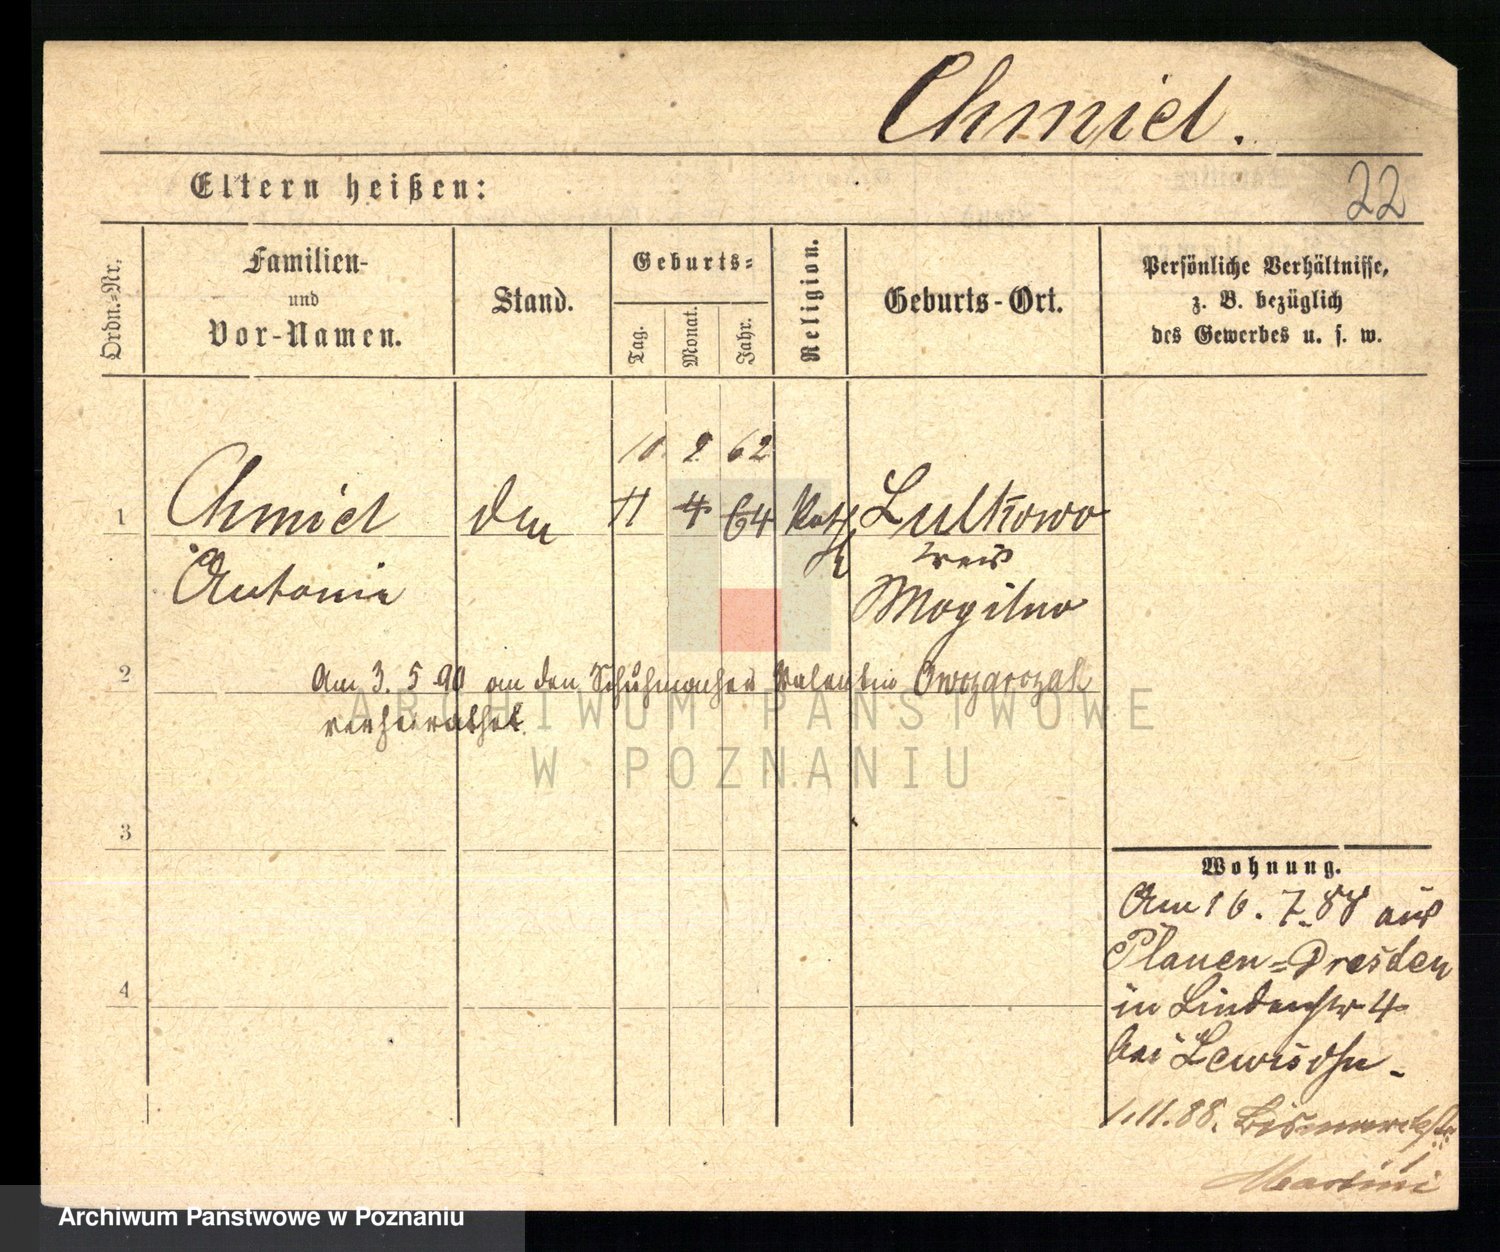 Chmiel.
Eltern heißen:
22
Ordn.=Nr.
Familien-
und
Vor-Namen.
Stand.
Geburts=
Tag.
Monat.
Jahr.
Religion.
Geburts-Ort.
Persönliche Verhältnisse,
z. B. bezüglich
des Gewerbes u. s. w.
10. 2. 62
1 Chmiel 11 4 64 Kath Lulkowo
Antonie
Kreis
Mogilno
2
Am 3. 5 90 an den Schuhmacher Valentin Owczarczak
verheirathet.
ARCHIWUM PAŃSTWOWE
W POZNANIU
3
4
Wohnung.
Am 16. 7. 88 aus
Plauen=Dresden
in Lindenstr 4
bei Lewisohn.
1.11.88. Bismarckstr.
Archiwum Państwowe w Poznaniu